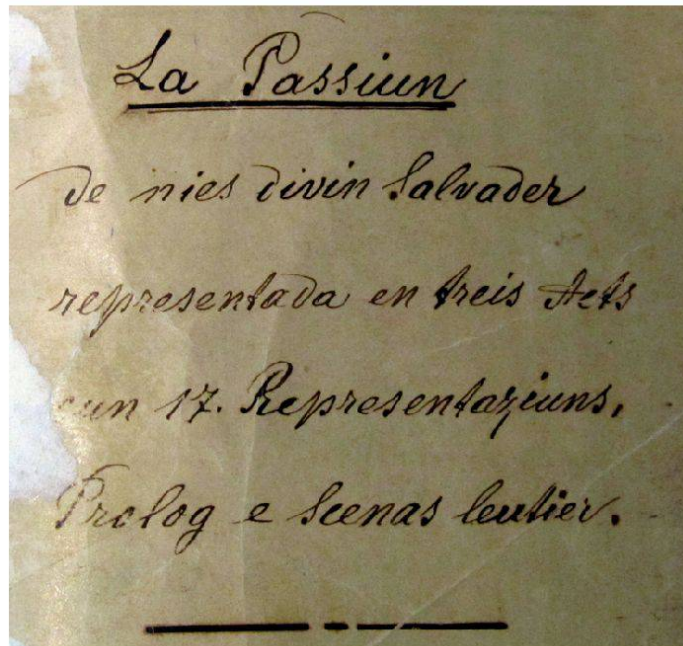 La Passiun
de nies divin Salvader
representada en treis Acts
cun 17. Representaziuns,
Prolog e Scenas leutier.